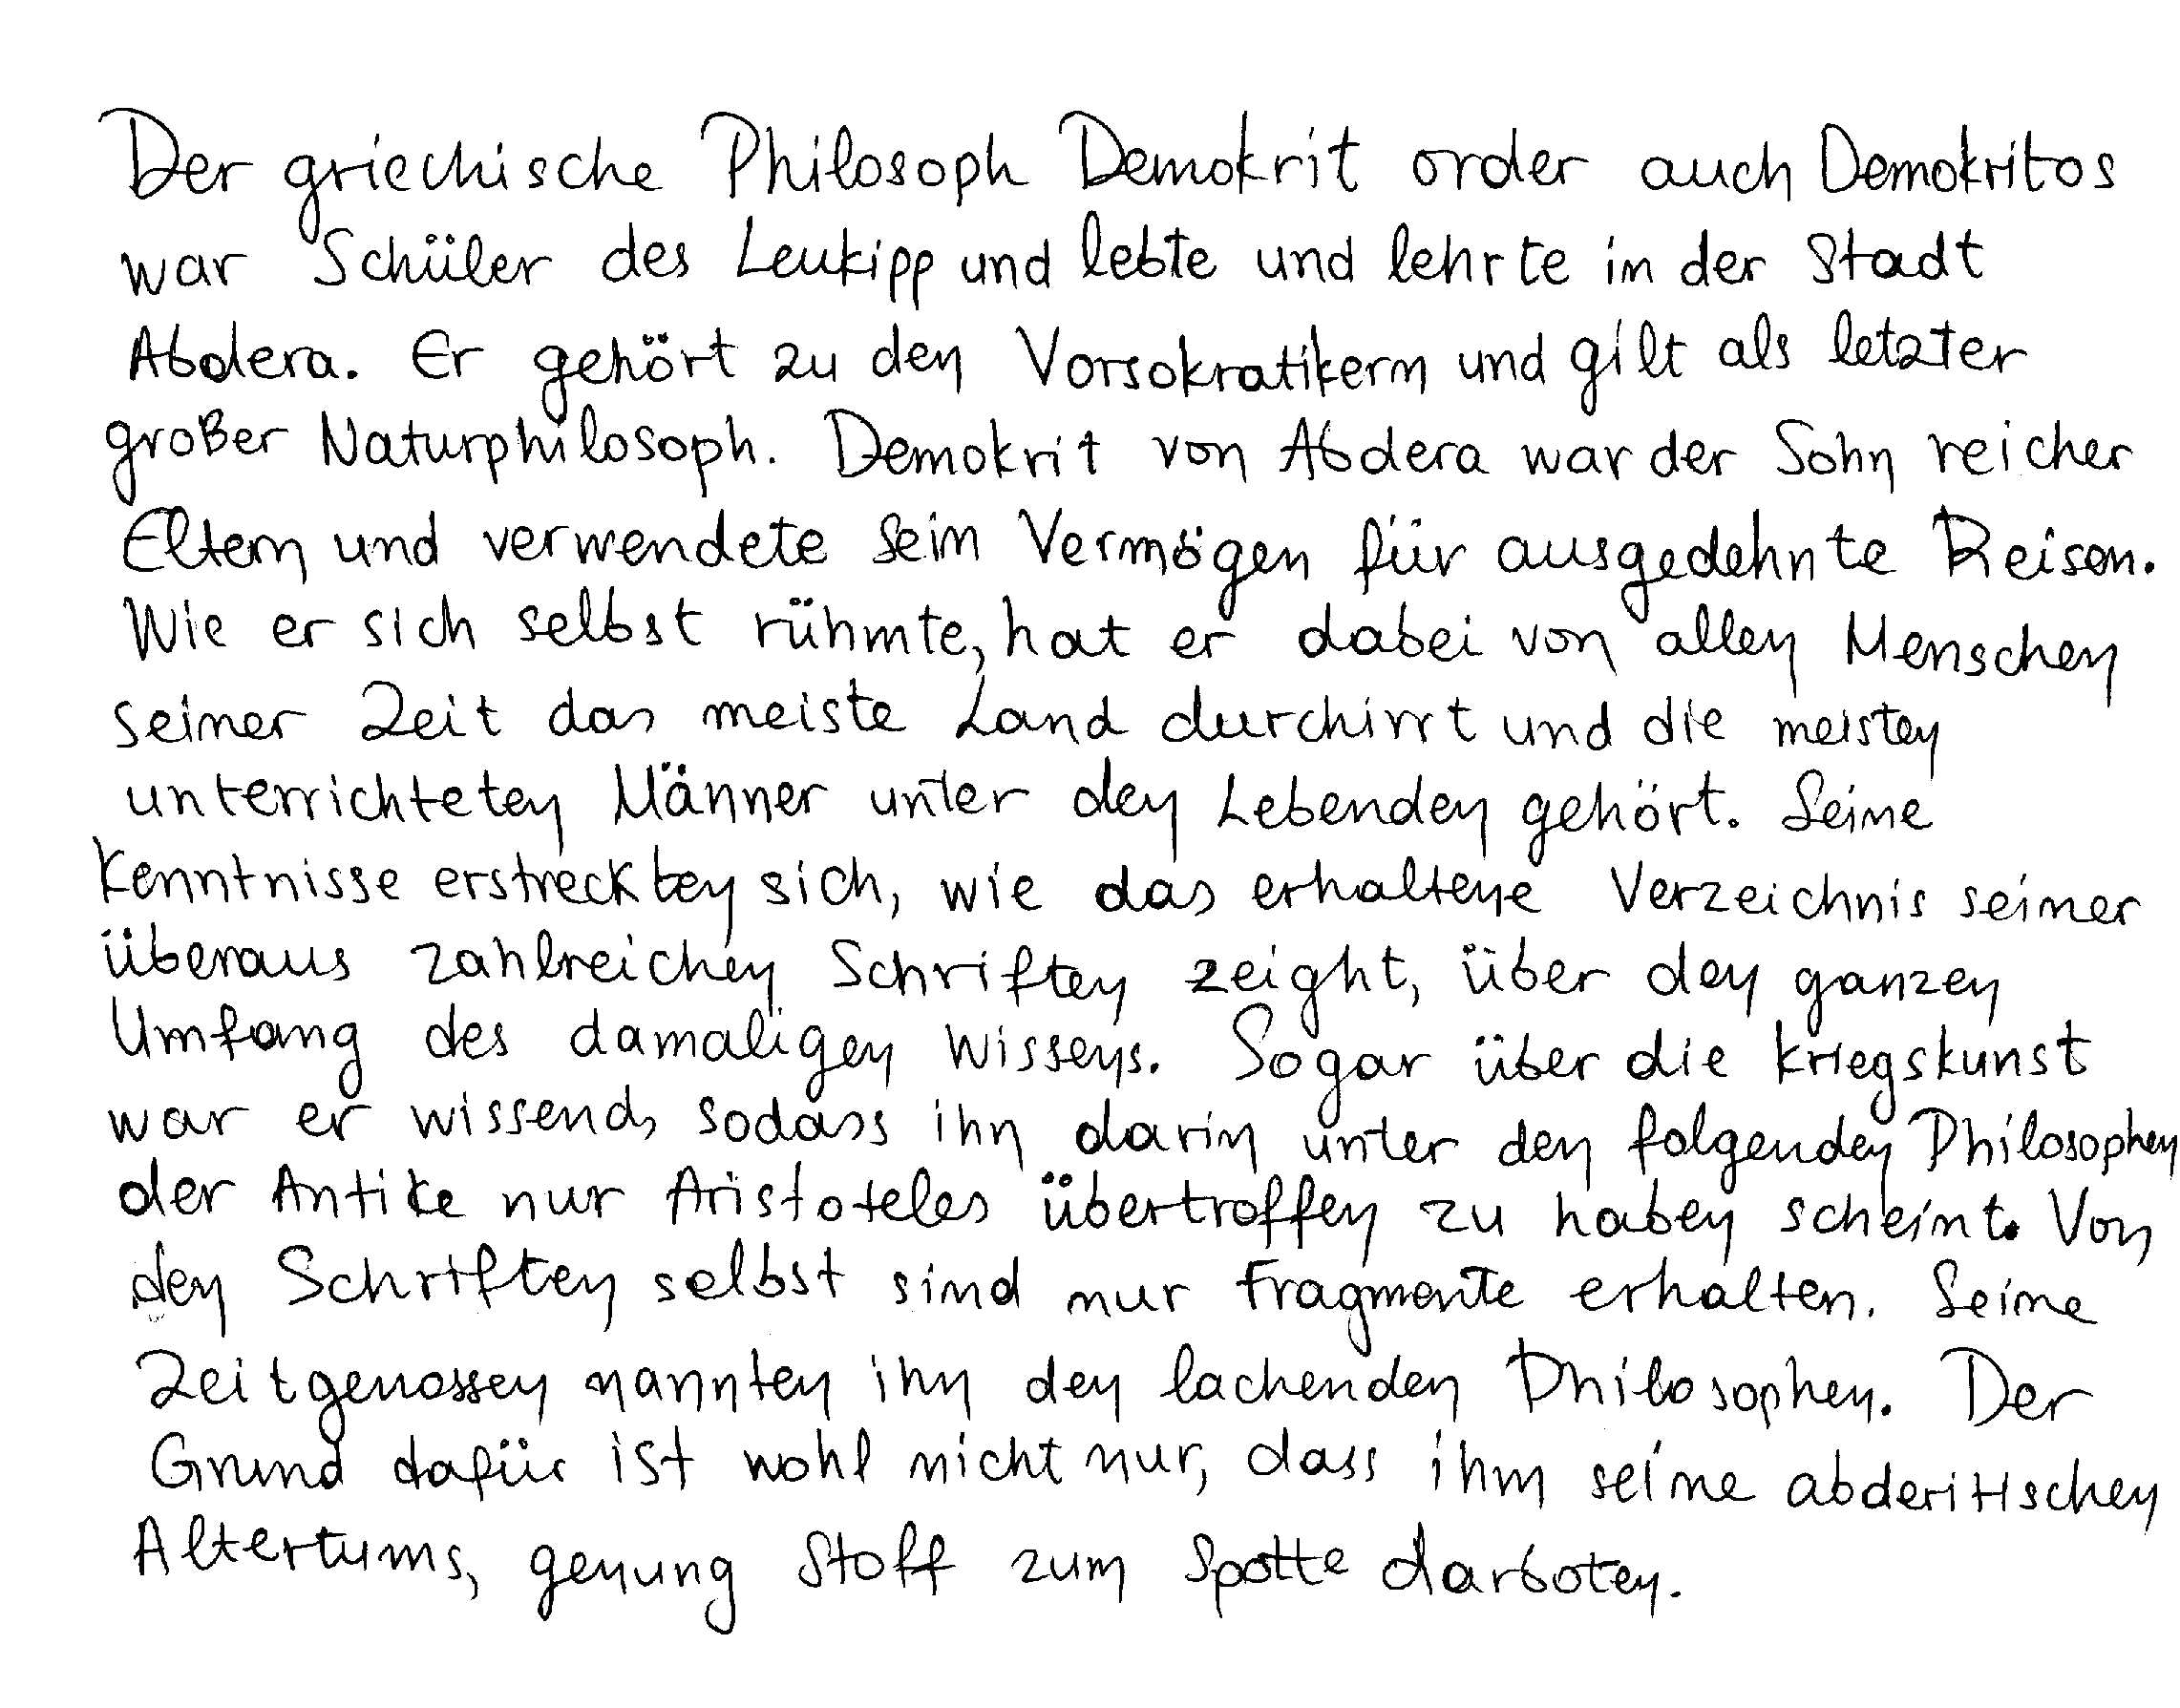 Der griechische Philosoph Demokrit order auch Demokritos
war Schüler des Leukipp und lebte und lehrte in der Stadt
Abdera. Er gehört zu den Vorsokratikern und gilt als letzter
großer Naturphilosoph. Demokrit von Abdera war der Sohn reicher
Eltern und verwendete sein Vermögen für ausgedehnte Reisen.
Wie er sich selbst rühmte, hat er dabei von allen Menschen
seiner Zeit das meiste Land durchirrt und die meisten
unterrichteten Männer unter den Lebenden gehört. Seine
Kenntnisse erstreckten sich, wie das erhaltene Verzeichnis seiner
überaus zahlreichen Schriften zeight, über den ganzen
Umfang des damaligen Wissens. Sogar über die Kriegskunst
war er wissend, sodass ihn darin unter den folgenden Philosophen
der Antike nur Aristoteles übertroffen zu haben scheint. Von
den Schriften selbst sind nur Fragmente erhalten. Seine
Zeitgenossen nannten ihn den lachenden Philosophen. Der
Grund dafür ist wohl nicht nur, dass ihm seine abderitischen
Altertums, genung Stoff zum Spotte darboten.